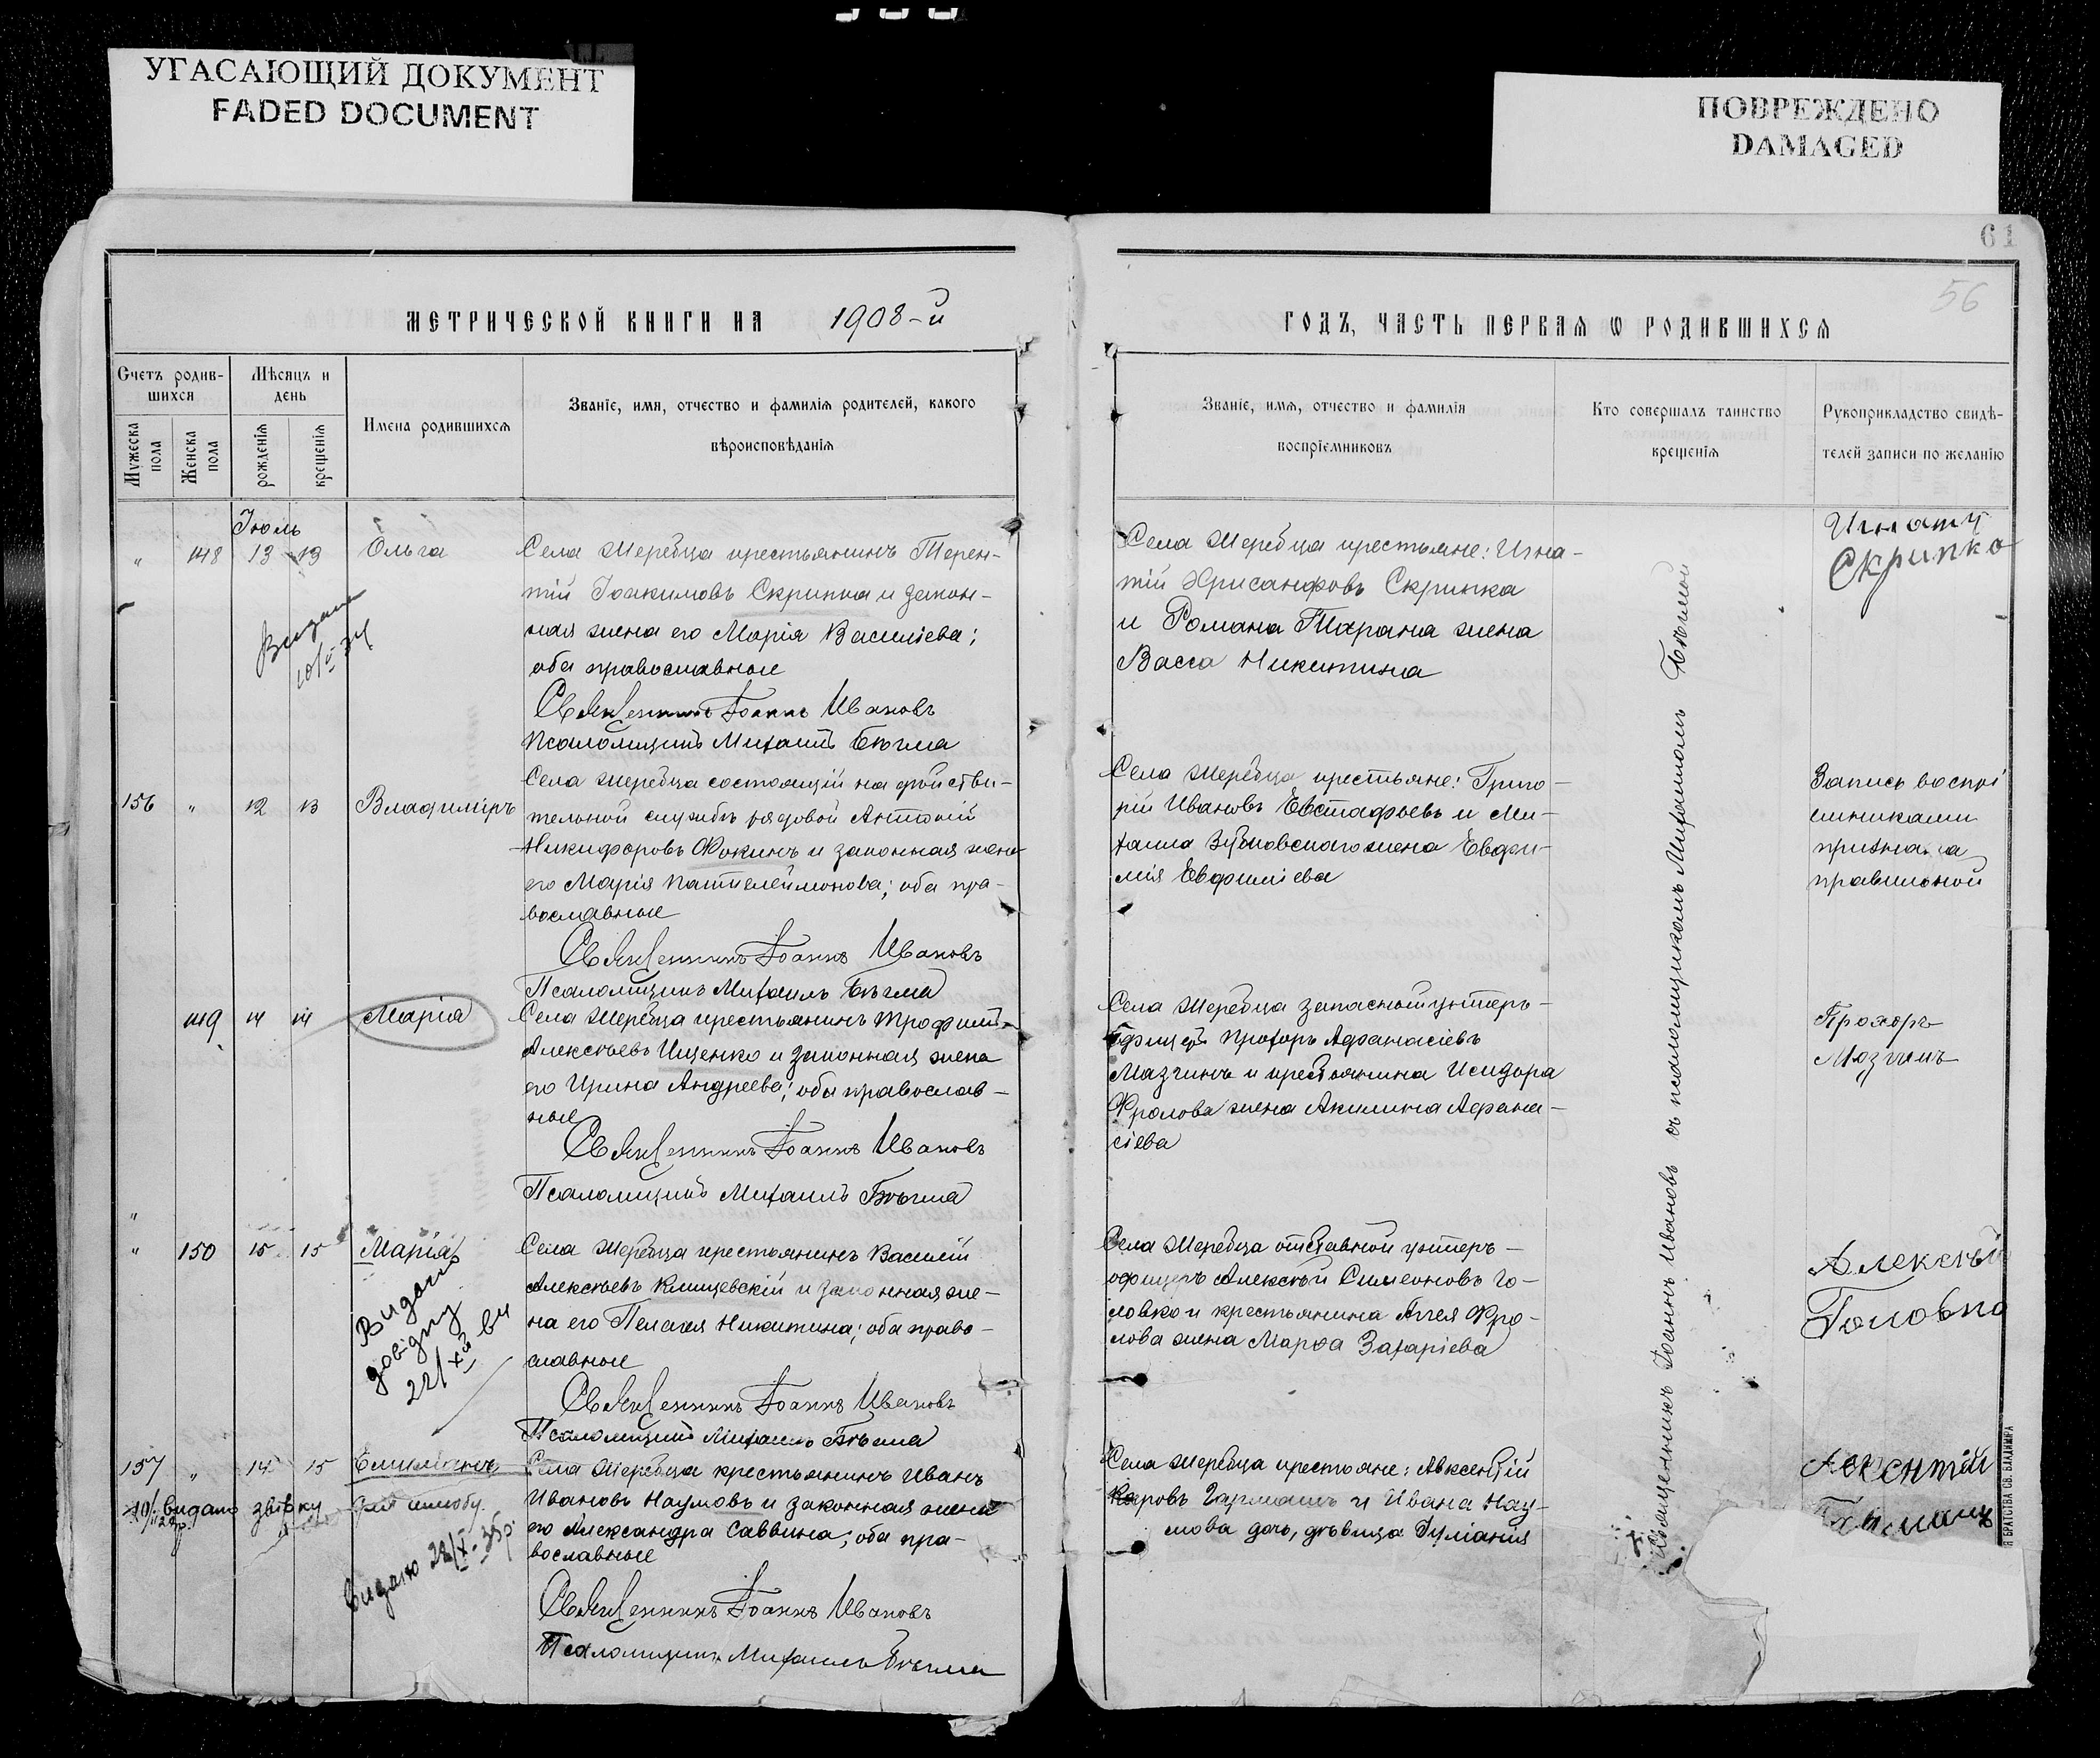 УГАСАЮЩИЙ ДОКУМЕНТ
FADED DOCUMENT
ПОВРЕЖДЕНО
DAMAGED
61
56
МЕТРИЧЕСКОЙ КНИГИ НА 1908-й
ГОДЪ, ЧАСТЬ ПЕРВАЯ Ѡ РОДИВШИХСЯ
Счетъ родив-
шихся
Мѣсяцъ и
день
Мужеска
пола
Женска
пола
рожденія
крещенія
Имена родившихся
Званіе, имя, отчество и фамилія родителей, какого
вѣроисповѣданія
Званіе, имя, отчество и фамилія
воспріемниковъ
Кто совершалъ таинство
крещенія
Рукоприкладство свидѣ-
телей записи по желанію
Іюль
" 148 13 13 Ольга
Села Жеребца крестьянинъ Терен-
тій Іоакимовъ Скрипка и закон-
ная жена его Марія Василіева;
оба православные
Священникъ Іоаннъ Ивановъ
Псаломщикъ Михаилъ Бѣгма
Видано
Села Жеребца крестьяне: Игна-
тій Хрисанфовъ Скрипка
и Романа Тарана жена
Васса Никитина
Игнатъ
Скрипко
156 " 12 13 Владиміръ
Села Жеребца состоящій на дѣйстви-
тельной службѣ рядовой Антоній
Никифоровъ Фокинъ и законная жена
его Марія Пантелеймонова; оба пра-
вославные
Священникъ Іоаннъ Ивановъ
Псаломщикъ Михаилъ Бѣгма
Села Жеребца крестьяне: Григо-
рій Ивановъ Евстафьевъ и Ми-
хаила Зубковскаго жена Евфи-
мія Евфиміева
Запись воспрі
емниками
признана
правильной
149 14 14 Марія
Села Жеребца крестьянинъ Трофимъ
Алексѣевъ Ищенко и законная жена
его Ирина Андреева; оба православ-
ные
Священникъ Іоаннъ Ивановъ
Псаломщикъ Михаилъ Бѣгма
Села Жеребца запасный унтеръ-
офицеръ Прохоръ Афанасіевъ
Мазгинъ и крестьянина Исидора
Фролова жена Акилина Афана-
сіева
Прохоръ
Мозгинъ
"
" 150 15 15 Марія
Села Жеребца крестьянинъ Василій
Алексѣевъ Клищевскій и законная же-
на его Пелагея Никитина; оба право-
славные
Священникъ Іоаннъ Ивановъ
Псаломщикъ Михаилъ Бѣгма
Видано
довідку
22/XII
Села Жеребца отставной унтеръ-
офицеръ Алексѣй Симеоновъ Го-
ловко и крестьянина Аггея Фро-
лова жена Марфа Захаріева
Алексѣй
Головко
157 " 14 15 Емиліанъ
Села Жеребца крестьянинъ Иванъ
Ивановъ Наумовъ и законная жена
его Александра Саввина; оба пра-
вославные
Священникъ Іоаннъ Ивановъ
Псаломщикъ Михаилъ Бѣгма
видано звірку для шлюбу
Видано 22/X-35р.
Села Жеребца крестьяне: Авксентій
Карповъ Гармашъ и Ивана Нау-
мова дочь, дѣвица Іуліанія
Аксентій
Священникъ Іоаннъ Ивановъ съ псаломщикомъ Михаиломъ Бѣгмой
БРАТСТВА СВ. ВЛАДИМІРА